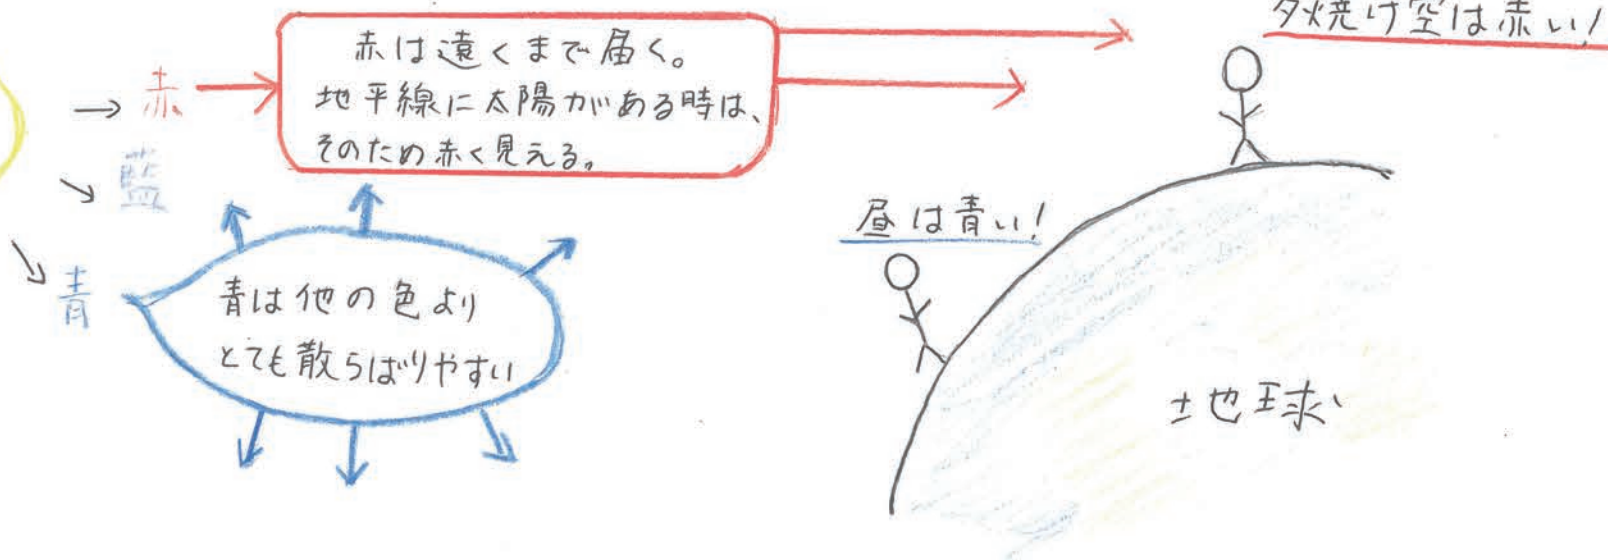 夕焼け空は赤い!
赤
赤は遠くまで届く。
地平線に太陽がある時は、
そのため赤く見える。
藍
昼は青い!
青
青は他の色より
とても散らばりやすい
地球